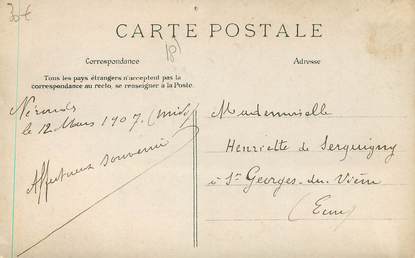 30€
CARTE POSTALE
Correspondance
Adresse
Tous les pays étrangers n'acceptent pas la
correspondance au recto, se renseigner à la Poste.
le 12 Mars 1907. (midi)
Affectueux souvenir
Mademoiselle
Henriette de Serquigny
à St Georges-du-Vièvre
(Eure)